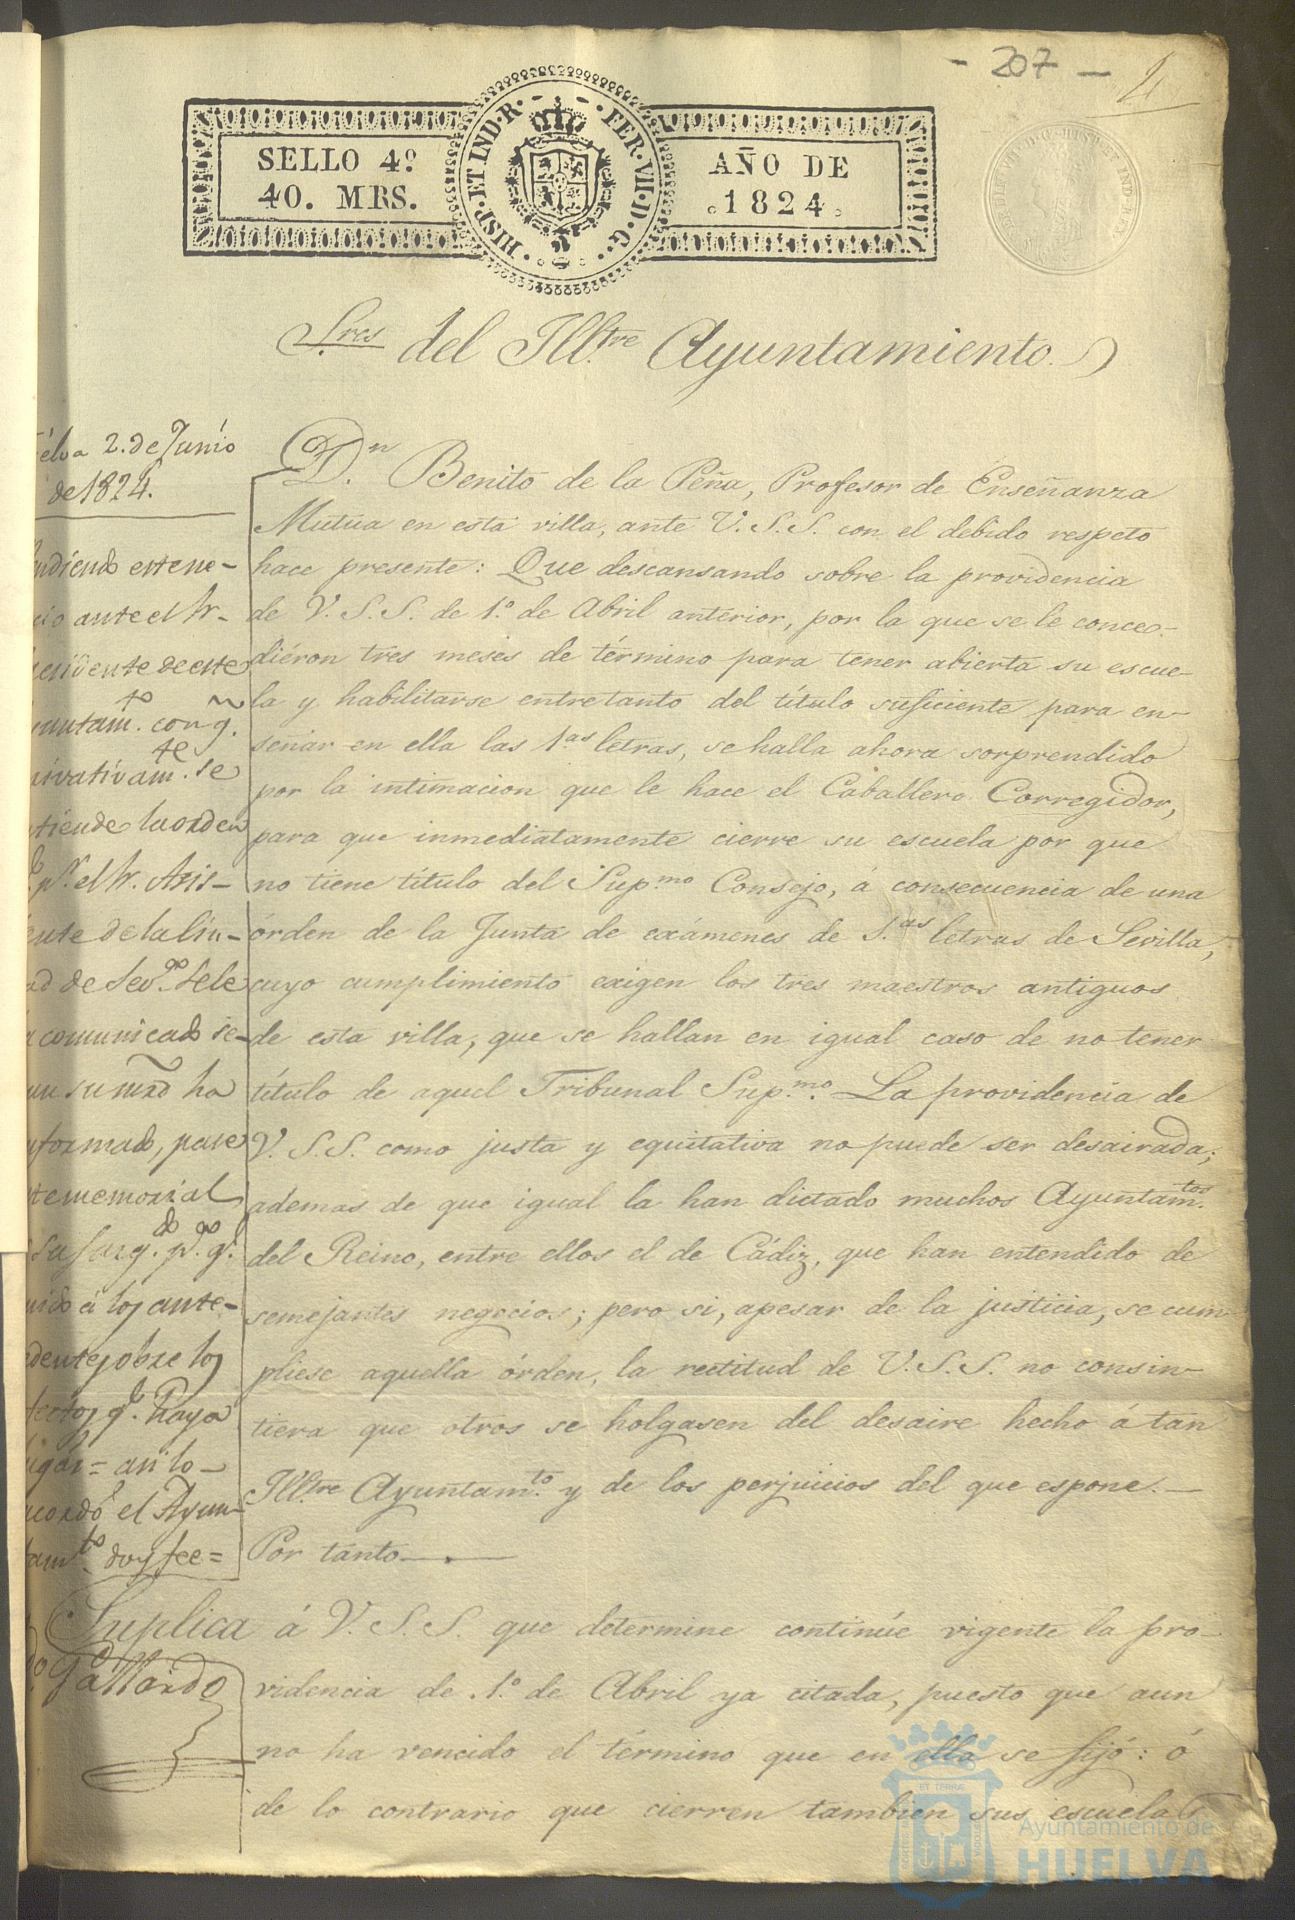 - 207 -
SELLO 4º
40. MRS.
HISP. ET IND. R. FER. VII. D. G.
AÑO DE
1824
Sres del Illtre Ayuntamiento.
2. de Junio
de 1824.
ante el Sr.
con q.
se
el Sr. Asis-
de Sevª. sele
comunicado se-
ha
pase
memorial
á los ante-
sobre los
q. haya
= asi lo
acordó el Ayun-
tamto. doy fee =
Gallardo
Dn. Benito de la Peña, Profesor de Enseñanza
Mutua en esta villa, ante V.S.S. con el debido respeto
hace presente: Que descansando sobre la providencia
de V.S.S. de 1.º de Abril anterior, por la que se le conce-
diéron tres meses de término para tener abierta su escue-
la y habilitarse entretanto del título suficiente para en-
señar en ella las 1.as letras, se halla ahora sorprendido
por la intimacion que le hace el Caballero Corregidor,
para que inmediatamente cierre su escuela por que
no tiene título del Supmo Consejo, á consecuencia de una
órden de la Junta de exámenes de 1.as letras de Sevilla,
cuyo cumplimiento exigen los tres maestros antiguos
de esta villa, que se hallan en igual caso de no tener
título de aquel Tribunal Supmo. La providencia de
V.S.S. como justa y equitativa no puede ser desairada;
ademas de que igual la han dictado muchos Ayuntamtos.
del Reino, entre ellos el de Cádiz, que han entendido de
semejantes negocios; pero si, apesar de la justicia, se cum-
pliese aquella órden, la rectitud de V.S.S. no consin-
tiera que otros se holgasen del desaire hecho á tan
Illtre Ayuntamto. y de los perjuicios del que espone.—
Por tanto—.—
Suplica á V.S.S. que determine continúe vigente la pro-
videncia de 1.º de Abril ya citada, puesto que aun
no ha vencido el término que en ella se fijó: ó
de lo contrario que cierren tambien sus escuelas
Ayuntamiento de
HUELVA